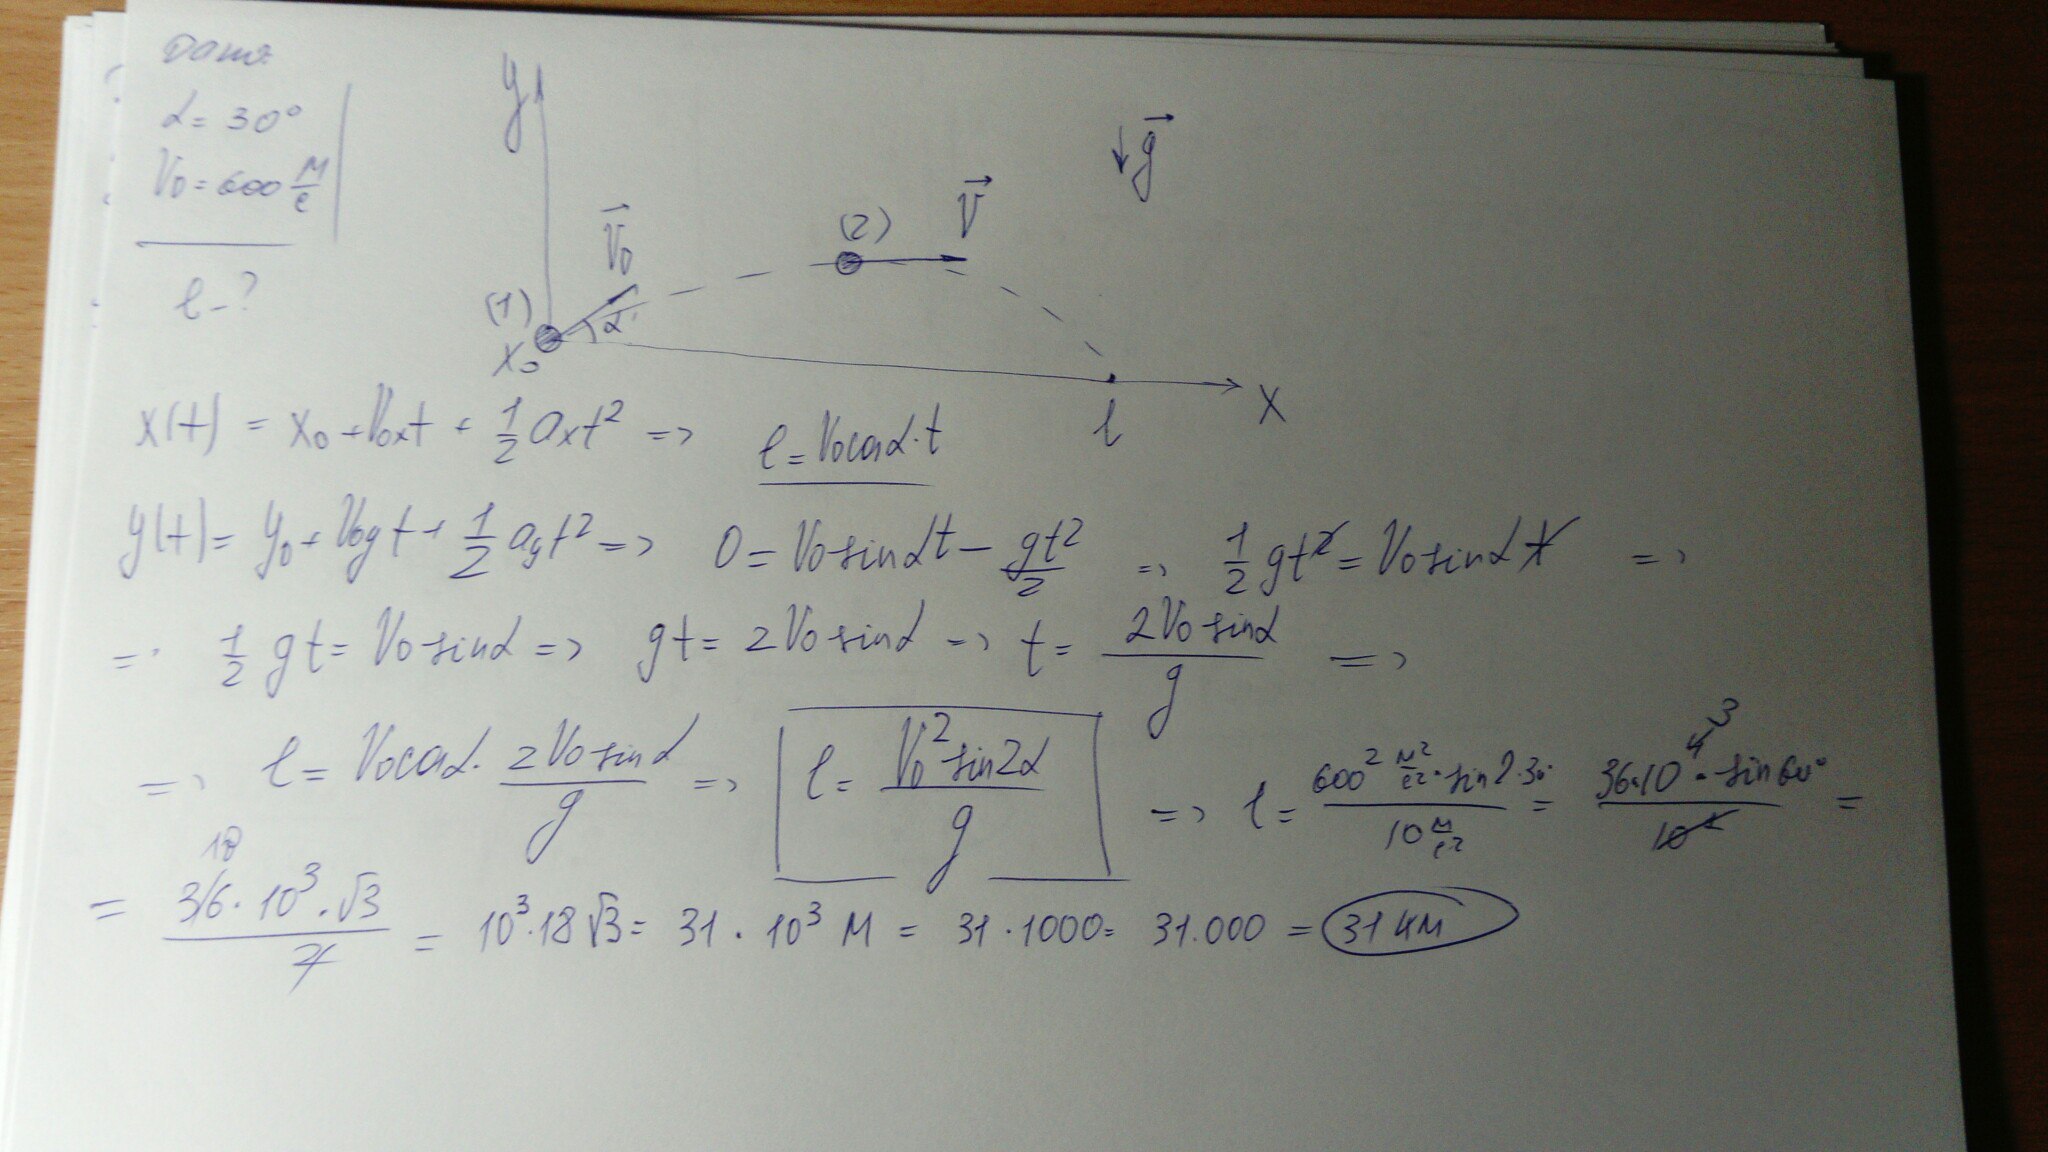 Дато
α = 30°
V₀ = 600 м/с
l - ?
y
V₀
(1)
x₀
α
(2)
V
g
l
x
x(t) = x₀ + V₀ₓt + 1/2 aₓt² => l = V₀cosα·t
y(t) = y₀ + V₀yt + 1/2 a_yt² => 0 = V₀sinαt - gt²/2 => 1/2 gt² = V₀sinαt =>
=> 1/2 gt = V₀sinα => gt = 2V₀sinα => t = 2V₀sinα/g =>
=> l = V₀cosα · 2V₀sinα/g => l = V₀²sin2α/g => l = 600² м²/с² · sin2·30°/10 м/с² = 36·10⁴ ³ · sin60°/10¹ =
= 36 18 · 10³ · √3/2 = 10³·18√3 = 31 · 10³ м = 31·1000 = 31.000 = 31 км